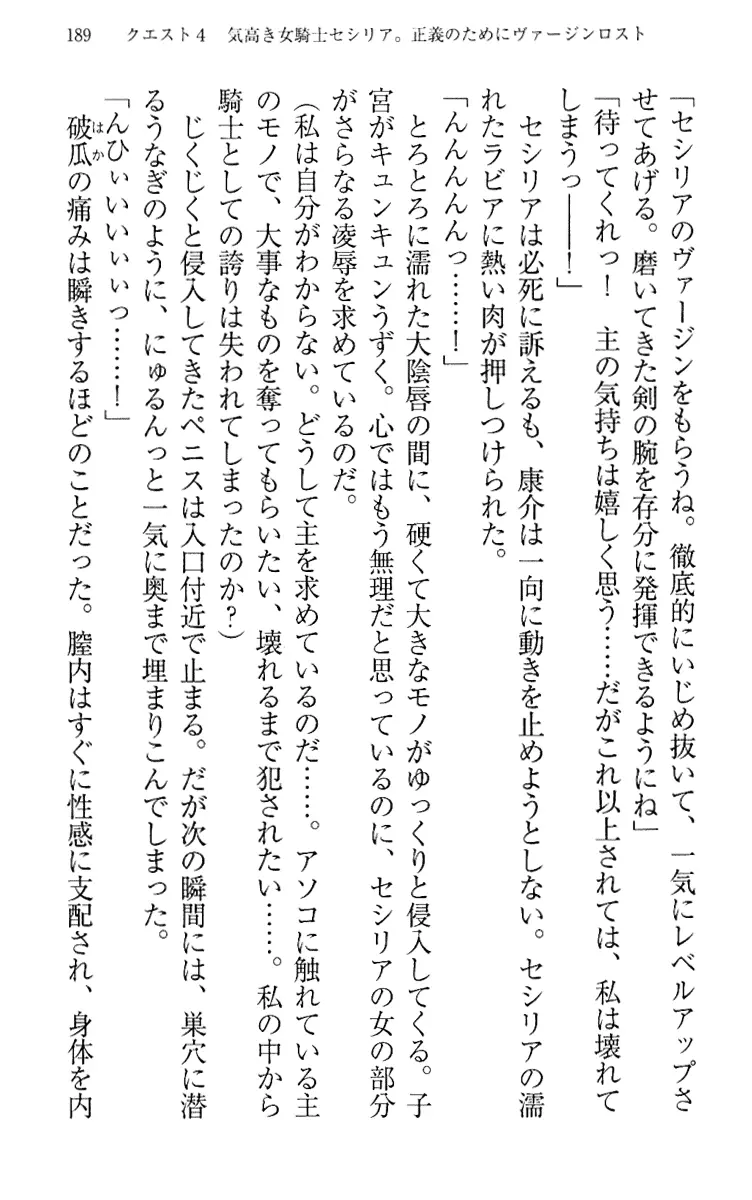 189　クエスト4　気高き女騎士セシリア。正義のためにヴァージンロスト
「セシリアのヴァージンをもらうね。徹底的にいじめ抜いて、一気にレベルアップさ
せてあげる。磨いてきた剣の腕を存分に発揮できるようにね」
「待ってくれっ！　主の気持ちは嬉しく思う……だがこれ以上されては、私は壊れて
しまうっ――！」
　セシリアは必死に訴えるも、康介は一向に動きを止めようとしない。セシリアの濡
れたラビアに熱い肉が押しつけられた。
「んんんんんっ……！」
　とろとろに濡れた大陰唇の間に、硬くて大きなモノがゆっくりと侵入してくる。子
宮がキュンキュンうずく。心ではもう無理だと思っているのに、セシリアの女の部分
がさらなる凌辱を求めているのだ。
（私は自分がわからない。どうして主を求めているのだ……。アソコに触れている主
のモノで、大事なものを奪ってもらいたい、壊れるまで犯されたい……。私の中から
騎士としての誇りは失われてしまったのか？）
　じくじくと侵入してきたペニスは入口付近で止まる。だが次の瞬間には、巣穴に潜
るうなぎのように、にゅるんっと一気に奥まで埋まりこんでしまった。
「んひぃぃいぃいっ……！」
　破瓜はかの痛みは瞬きするほどのことだった。膣内はすぐに性感に支配され、身体を内